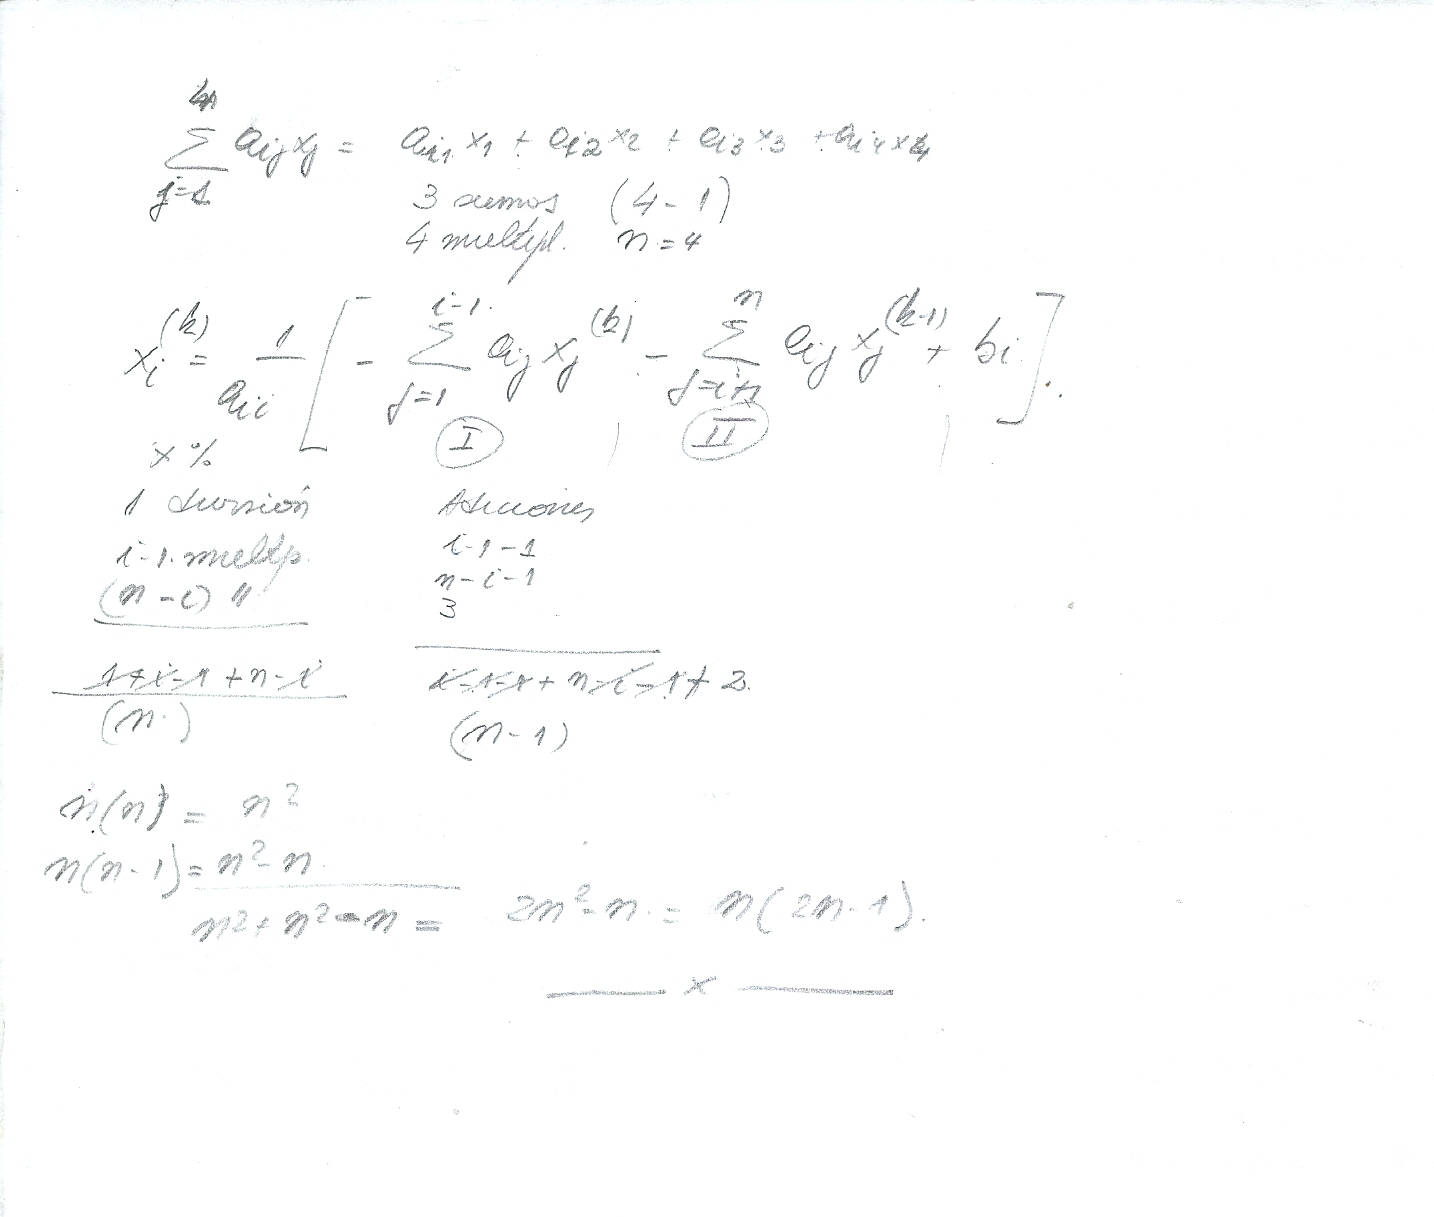 4n
∑ aij xj = ai1 x1 + ai2 x2 + ai3 x3 + ai4 x4
j=1
3 sumas (4-1)
4 multipl. n=4
xi^(k) = 1/aii [ - ∑_{j=1}^{i-1} aij xj^(k) - ∑_{j=i+1}^{n} aij xj^(k-1) + bi ].
I II
x %
1 división Adiciones
i-1 multip. i-1-1
(n-i) " n-i-1
3
1+i-1+n-i i-1-1+n-i-1+3
(n) (n-1)
n(n) = n²
n(n-1) = n²-n
n²+n²-n = 2n²-n = n(2n-1).
x